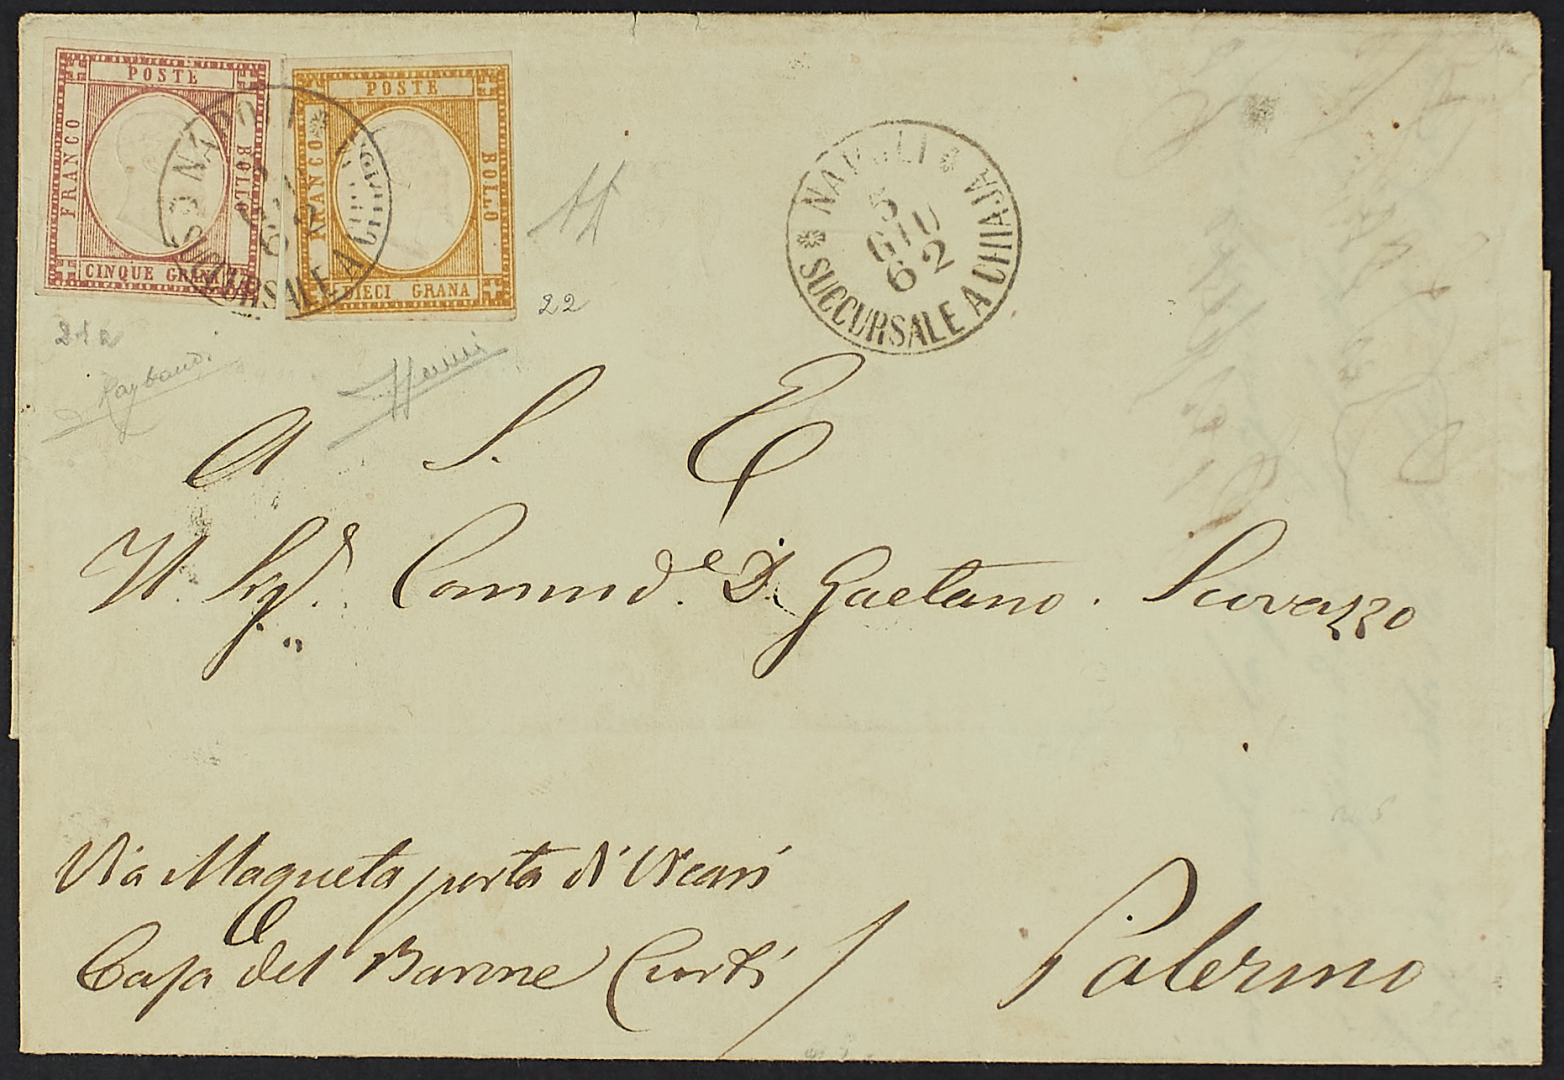 POSTE
FRANCO
BOLLO
CINQUE GRANA
POSTE
FRANCO
BOLLO
DIECI GRANA
NAPOLI
SUCCURSALE A CHIAJA
62
NAPOLI
5
GIU
62
SUCCURSALE A CHIAJA
21a
22
Raybaudi
A S. E.
Il Sig.r Commd.e D. Gaetano Scovazzo
Via Maqueta porta di Vicari
Casa del Barone Curti
Palermo